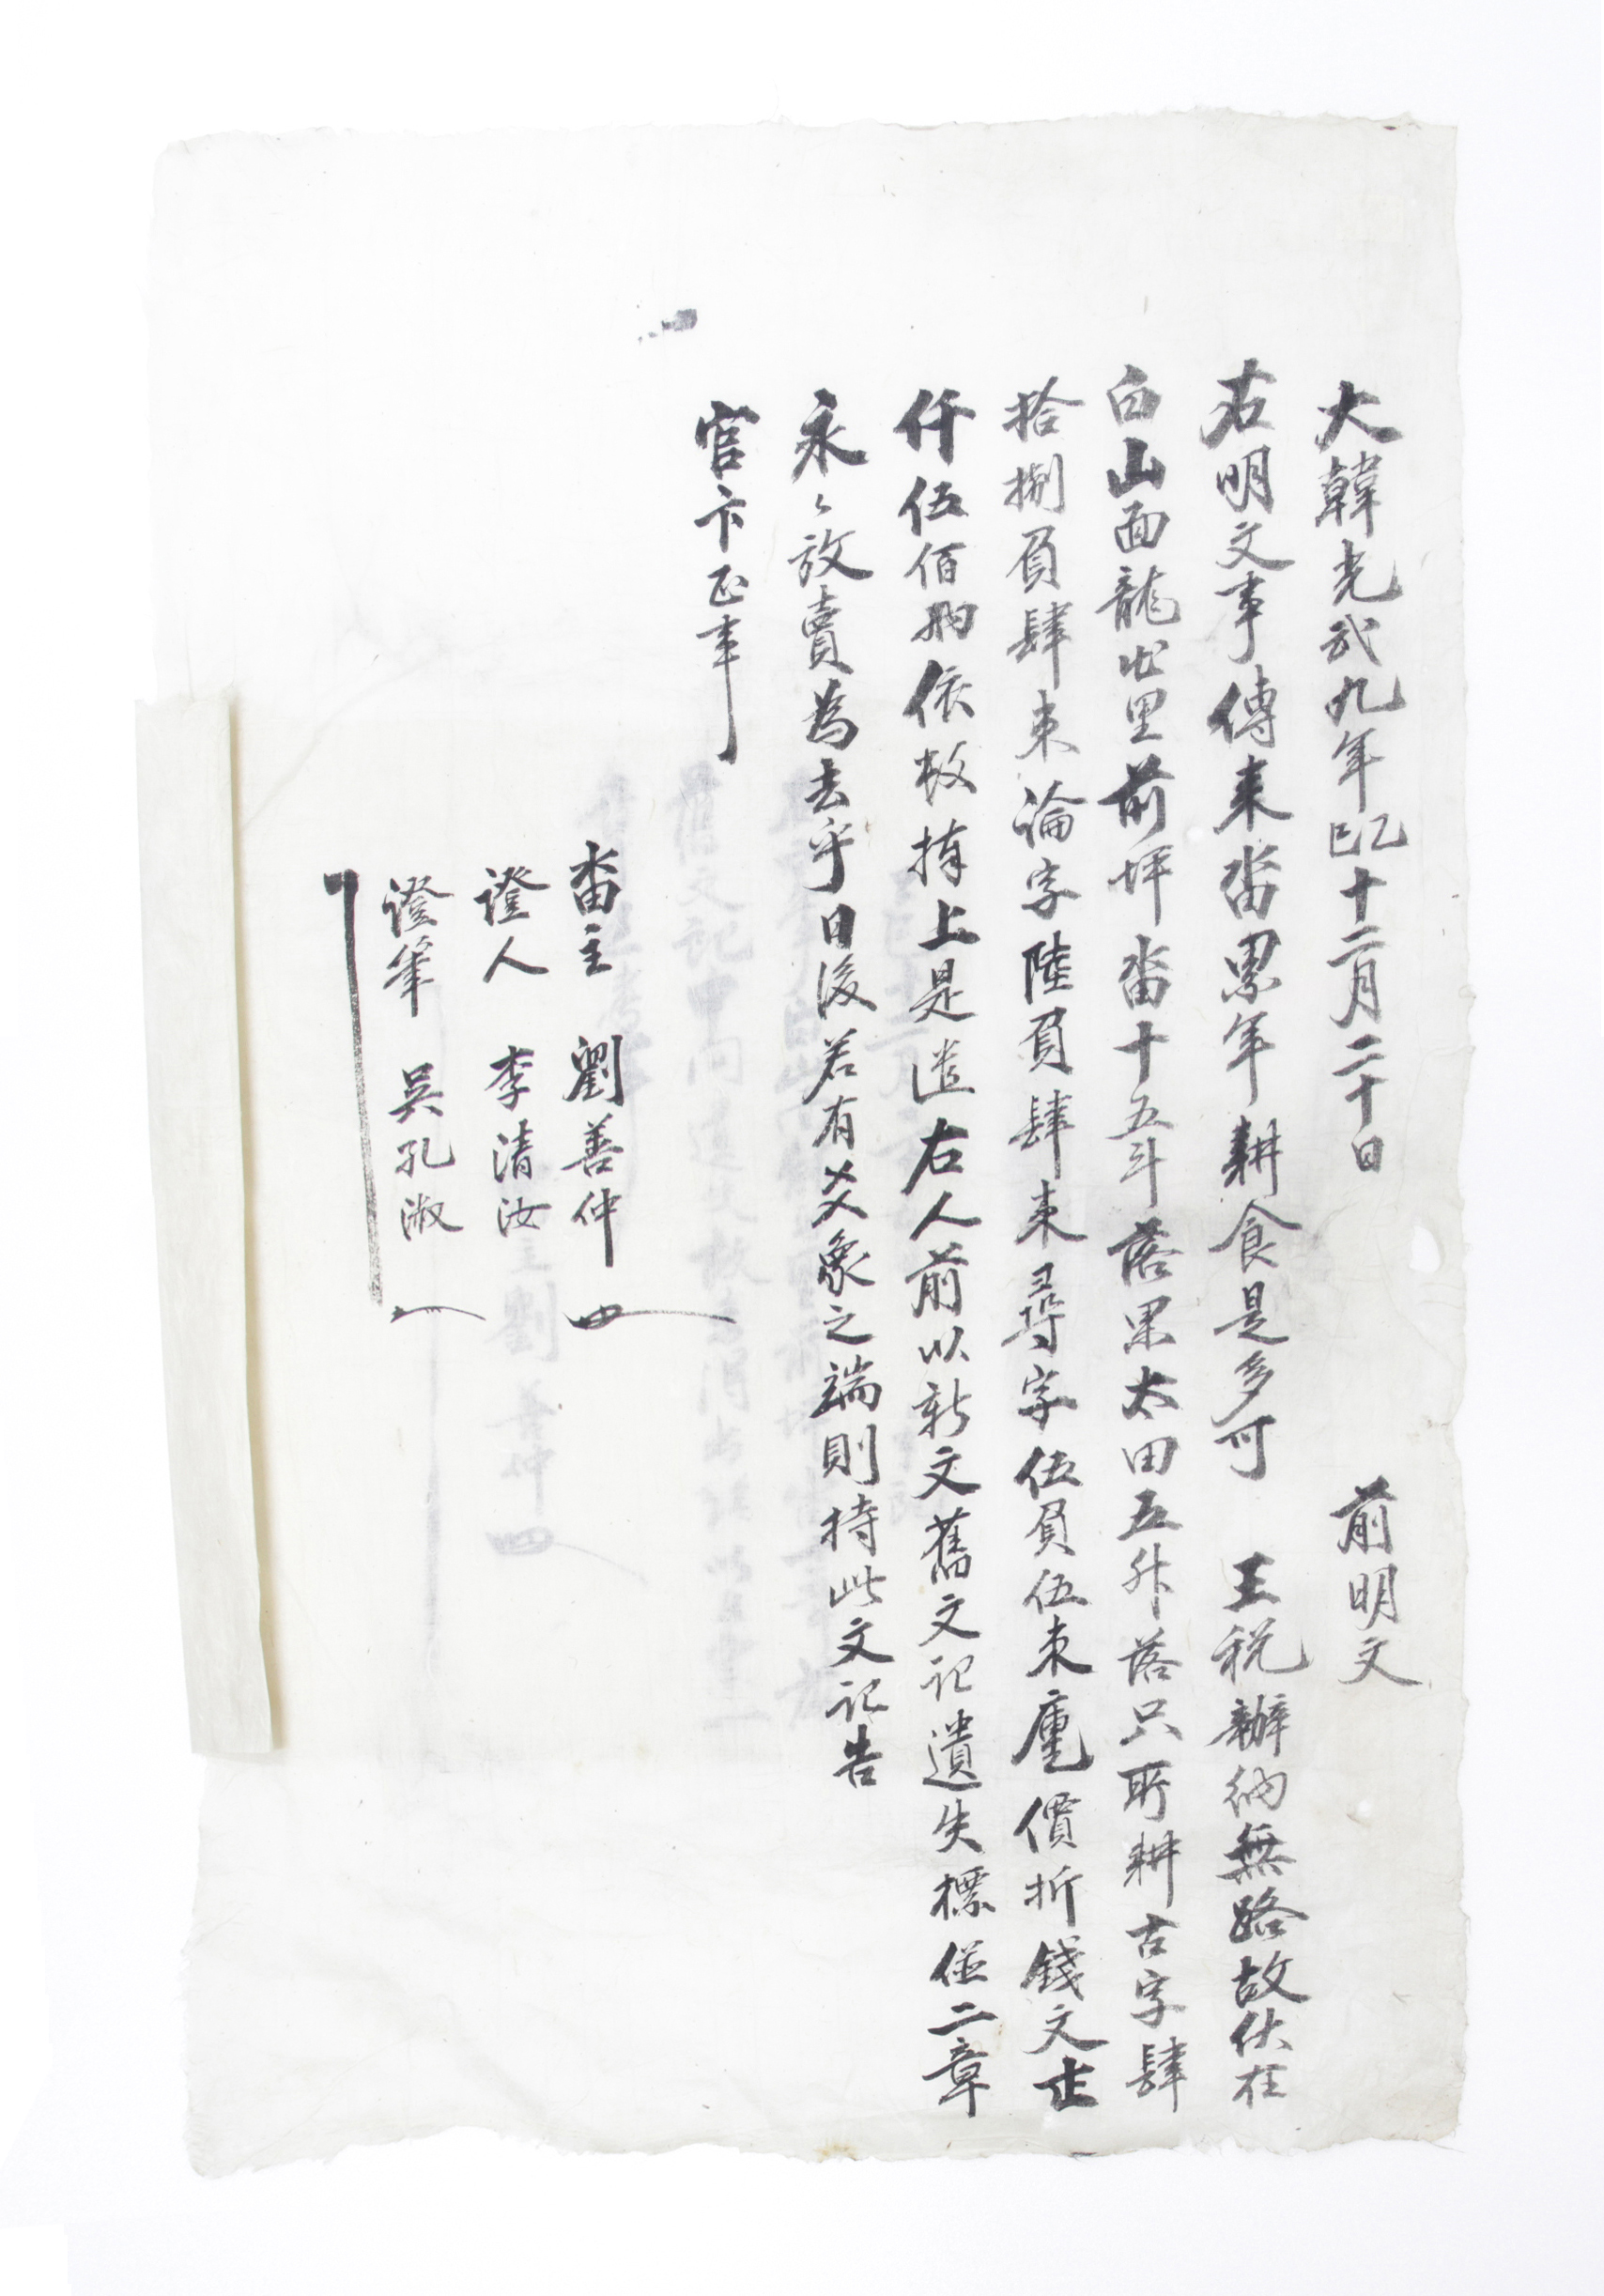 大韓光武九年乙巳十二月二十日 前明文
右明文事傳來畓累年耕食是多可 王稅辦納無路故伏在
白山面龍出里前坪畓十五斗落果太田五升落只所耕古字肆
拾捌負肆束論字陸負肆束尋字伍負伍束廛價折錢文
仟伍佰兩依數捧上是遣右人前以新文舊文記遺失標並二章
永々放賣為去乎日後若有爻象之端則持此文記告
官卞正事
畓主 劉善仲
證人 李清汝
證筆 吳孔淑